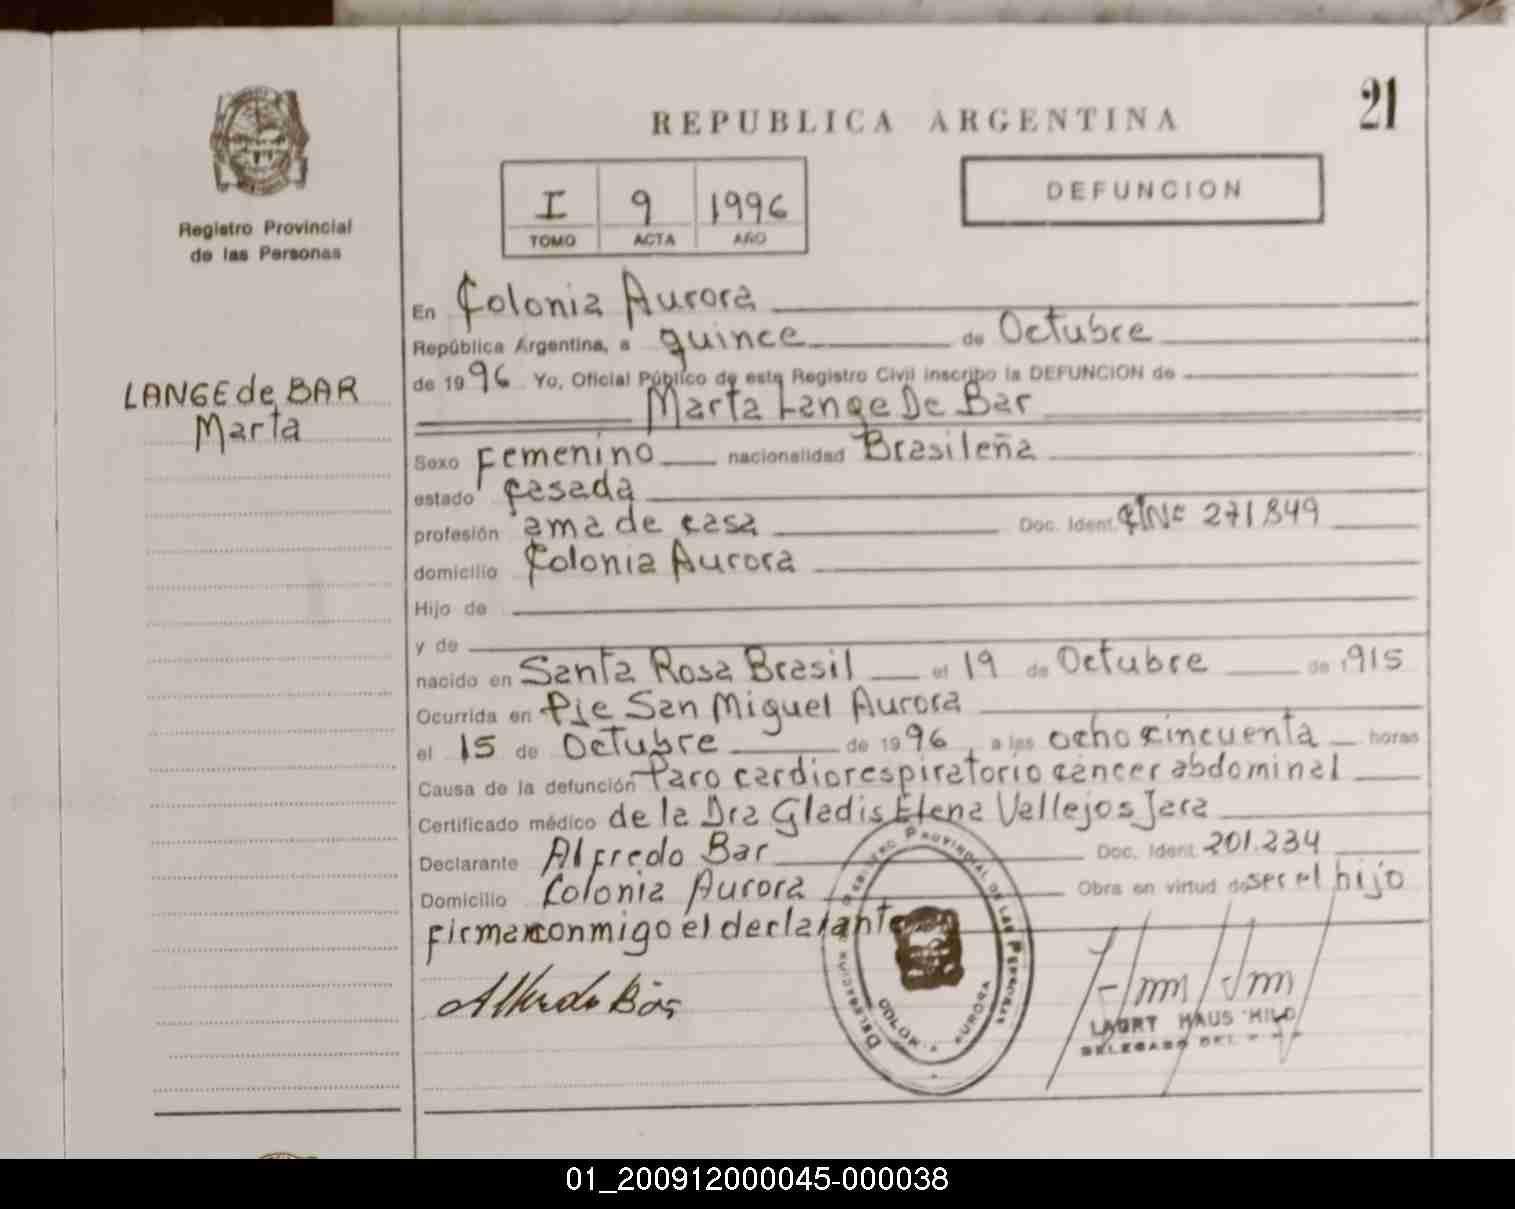 21
REPUBLICA ARGENTINA
DEFUNCION
I 9 1996
TOMO ACTA AÑO
Registro Provincial
de las Personas
LANGE de BAR
Marta
En Colonia Aurora
República Argentina, a quince de Octubre
de 1996 Yo, Oficial Público de este Registro Civil inscribo la DEFUNCION de
Marta Lange De Bar
Sexo Femenino nacionalidad Brasileña
estado Casada
profesión ama de casa Doc. Ident. 271.849
domicilio Colonia Aurora
Hijo de
y de
nacido en Santa Rosa Brasil el 19 de Octubre de 1915
Ocurrida en Pje San Miguel Aurora
el 15 de Octubre de 1996, a las ocho cincuenta horas
Causa de la defunción Paro cardiorespiratorio cáncer abdominal
Certificado médico de la Dra Gladis Elena Vallejos Jara
Declarante Alfredo Bar Doc. Ident. 201.234
Domicilio Colonia Aurora Obra en virtud de ser el hijo
firman conmigo el declarante
Alfredo Bar
REGISTRO PROVINCIAL DE LAS PERSONAS
DELEGACION
COLONIA AURORA
HAUS HILD
DELEGADO DEL
01_200912000045-000038